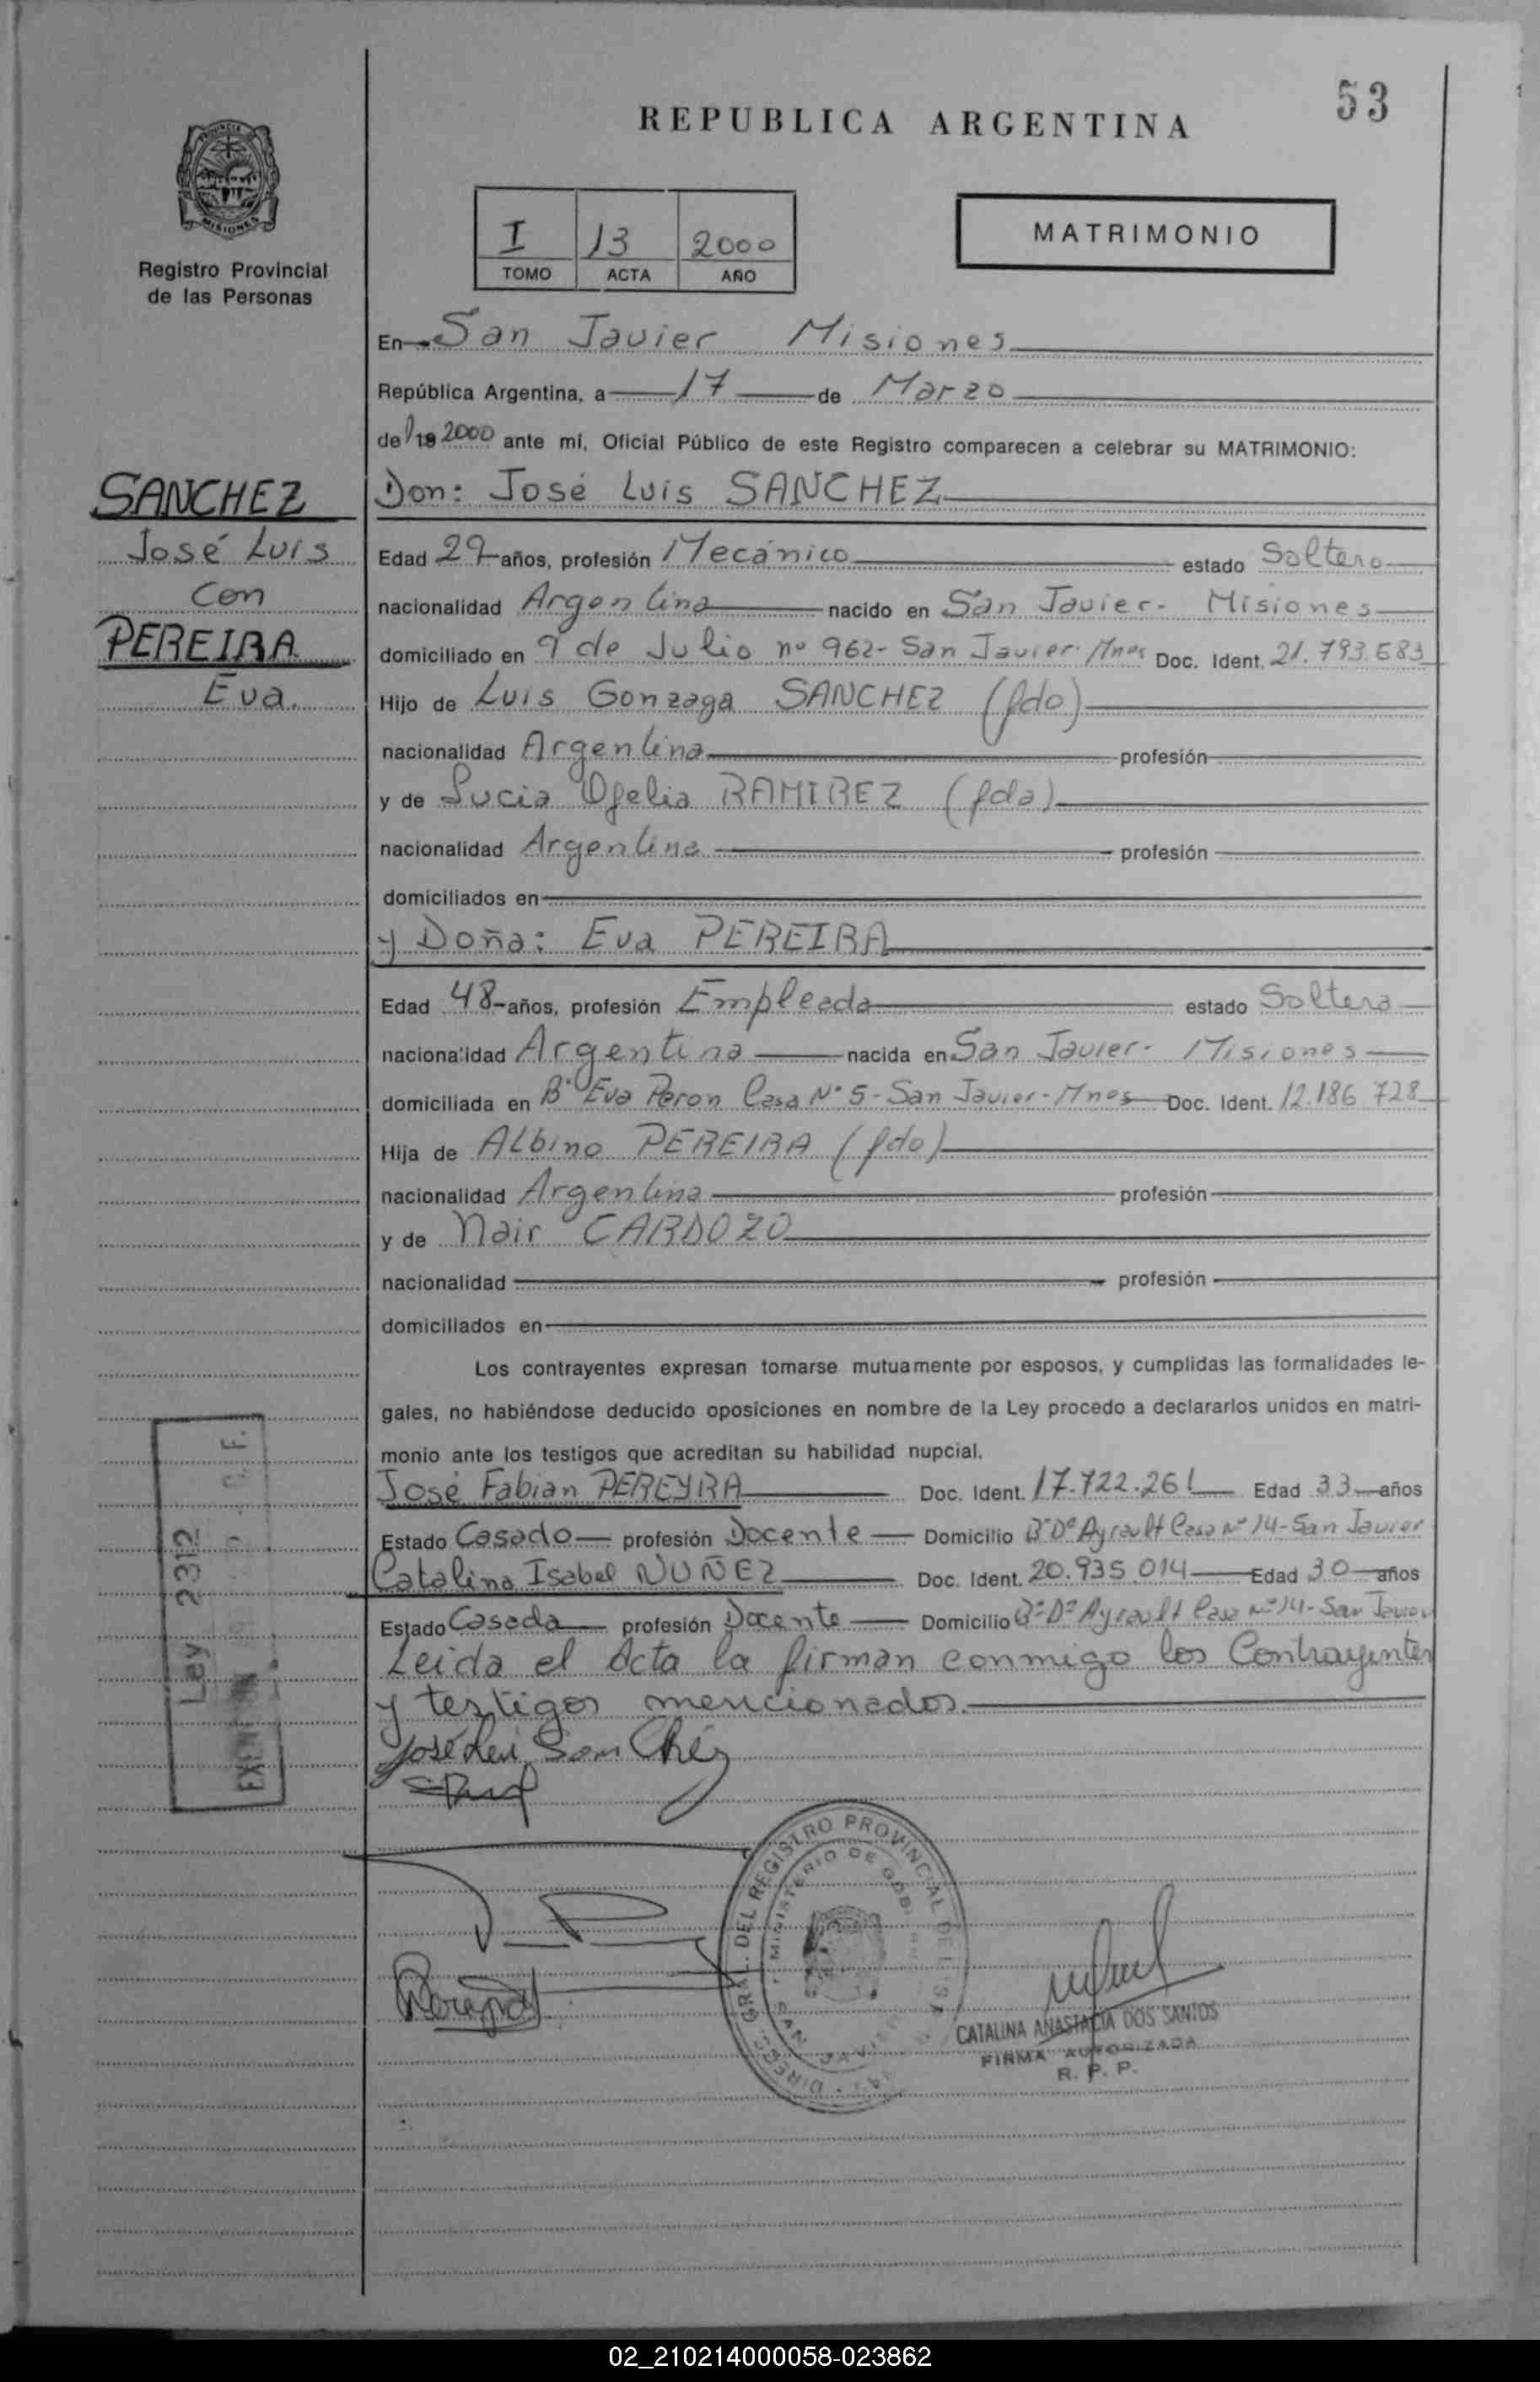 53
REPUBLICA ARGENTINA
MISIONES
Registro Provincial
de las Personas
I 13 2000
TOMO ACTA AÑO
MATRIMONIO
En San Javier Misiones
República Argentina, a 17 de Marzo
del 19 2000 ante mí, Oficial Público de este Registro comparecen a celebrar su MATRIMONIO:
SANCHEZ
José Luis
Con
PEREIRA
Eva.
Don: José Luis SANCHEZ
Edad 29 años, profesión Mecánico estado Soltero
nacionalidad Argentina nacido en San Javier- Misiones
domiciliado en 9 de Julio nº 962- San Javier- Mnes Doc. Ident. 21.793.683
Hijo de Luis Gonzaga SANCHEZ (fdo)
nacionalidad Argentina profesión
y de Lucia Ofelia RAMIREZ (fda)
nacionalidad Argentina profesión
domiciliados en
y Doña: Eva PEREIRA
Edad 48 años, profesión Empleada estado Soltera
nacionalidad Argentina nacida en San Javier- Misiones
domiciliada en Bº Eva Peron Casa Nº 5- San Javier- Mnes Doc. Ident. 12.186.728
Hija de Albino PEREIRA (fdo)
nacionalidad Argentina profesión
y de Nair CARDOZO
nacionalidad profesión
domiciliados en
Los contrayentes expresan tomarse mutuamente por esposos, y cumplidas las formalidades le-
gales, no habiéndose deducido oposiciones en nombre de la Ley procedo a declararlos unidos en matri-
monio ante los testigos que acreditan su habilidad nupcial.
José Fabian PEREYRA Doc. Ident. 17.722.261 Edad 33 años
Estado Casado profesión Docente Domicilio Bº Dº Ayrault Casa Nº 14- San Javier
Catalina Isabel NUÑEZ Doc. Ident. 20.935.014 Edad 30 años
Estado Casada profesión Docente Domicilio Bº Dº Ayrault Casa Nº 14- San Javier
Leida el Acta la firman conmigo los Contrayentes
y testigos mencionados.
José Luis Sanchez
Ley 2312
DIREC. GRAL. DEL REGISTRO PROVINCIAL DE
MINISTERIO DE GOB.
SAN JAVIER
CATALINA ANASTACIA DOS SANTOS
FIRMA AUTORIZADA
R. P. P.
02_210214000058-023862